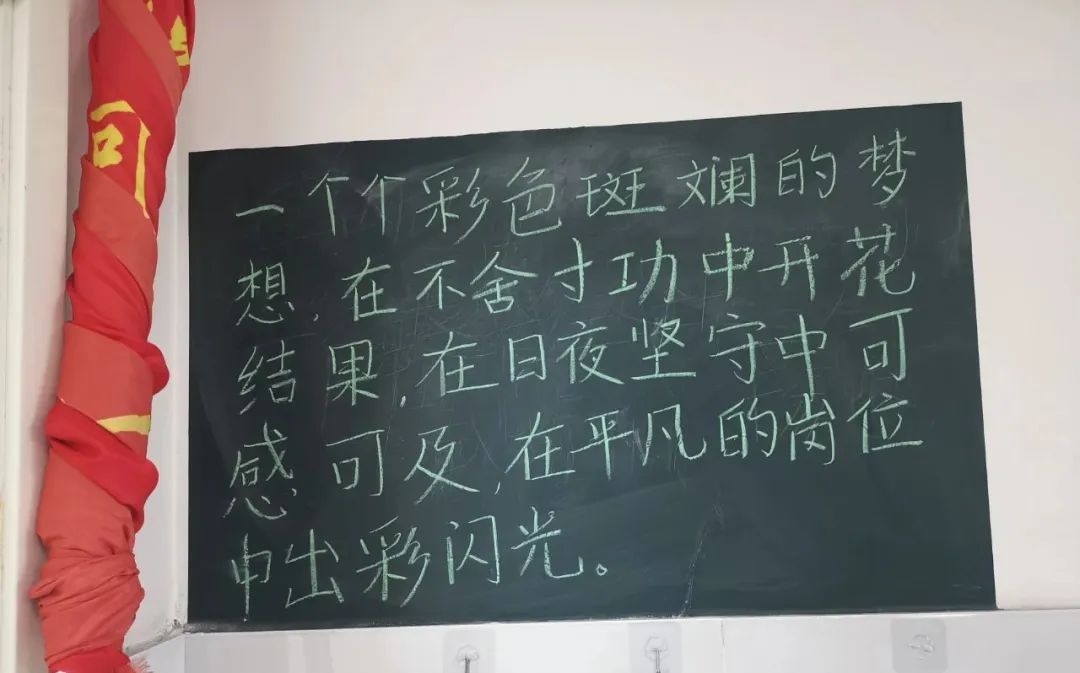 一个个彩色斑斓的梦
想,在不舍寸功中开花
结果,在日夜坚守中可
感可及,在平凡的岗位
中出彩闪光。
司